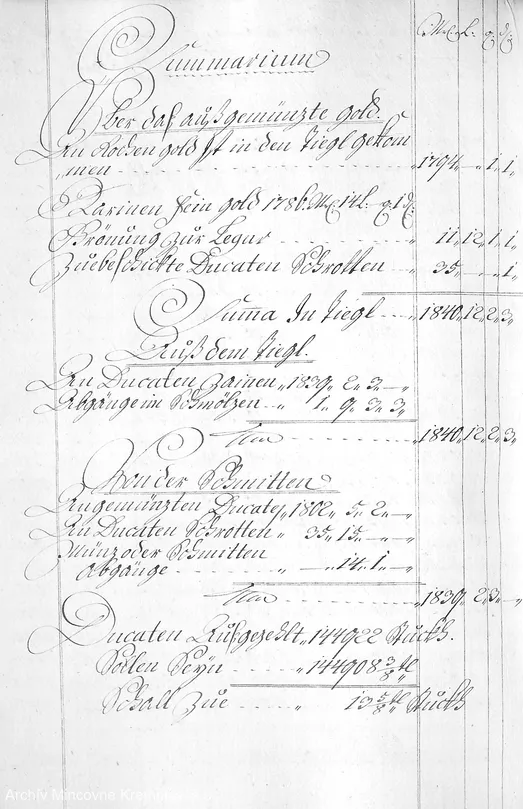 M. L. q. d.
Summarium
Über daß außgemünzte gold.
An Rochen gold Ist in den Tiegl gekom
men „1794„ — „1„1„
Darinen fein gold 1786. M. 14 L. q 1 d.
Körnung zur Legur „11„12„1„1
Zuebeschickte Ducaten Schrotten 35„ — „1„
Suma In Tiegl „1840„12„2„3„
Auß dem Tiegl.
An Ducaten Zainen „1839„ 2„ 3„ —„
Abgänge im Schmölzen „ 1„ 9„ 3„ 3„
„1840„12„2„3„
Von der Schmitten
An gemünzten Ducaten „1802„ 5„ 2„ —„
An Ducaten Schrotten „ 35„ 15„ —„ —„
Münz oder Schmitten
Abgänge „ —„ 14„ 1„ —„
„1839„ 2„3„—„
Ducaten Außgezehlt „144922 Stuckh.
Sollen Seyn „144908 3/8 tl
Schall Zue „ 13 5/8 tl Stuckh
Archív Mincovne Kremnica